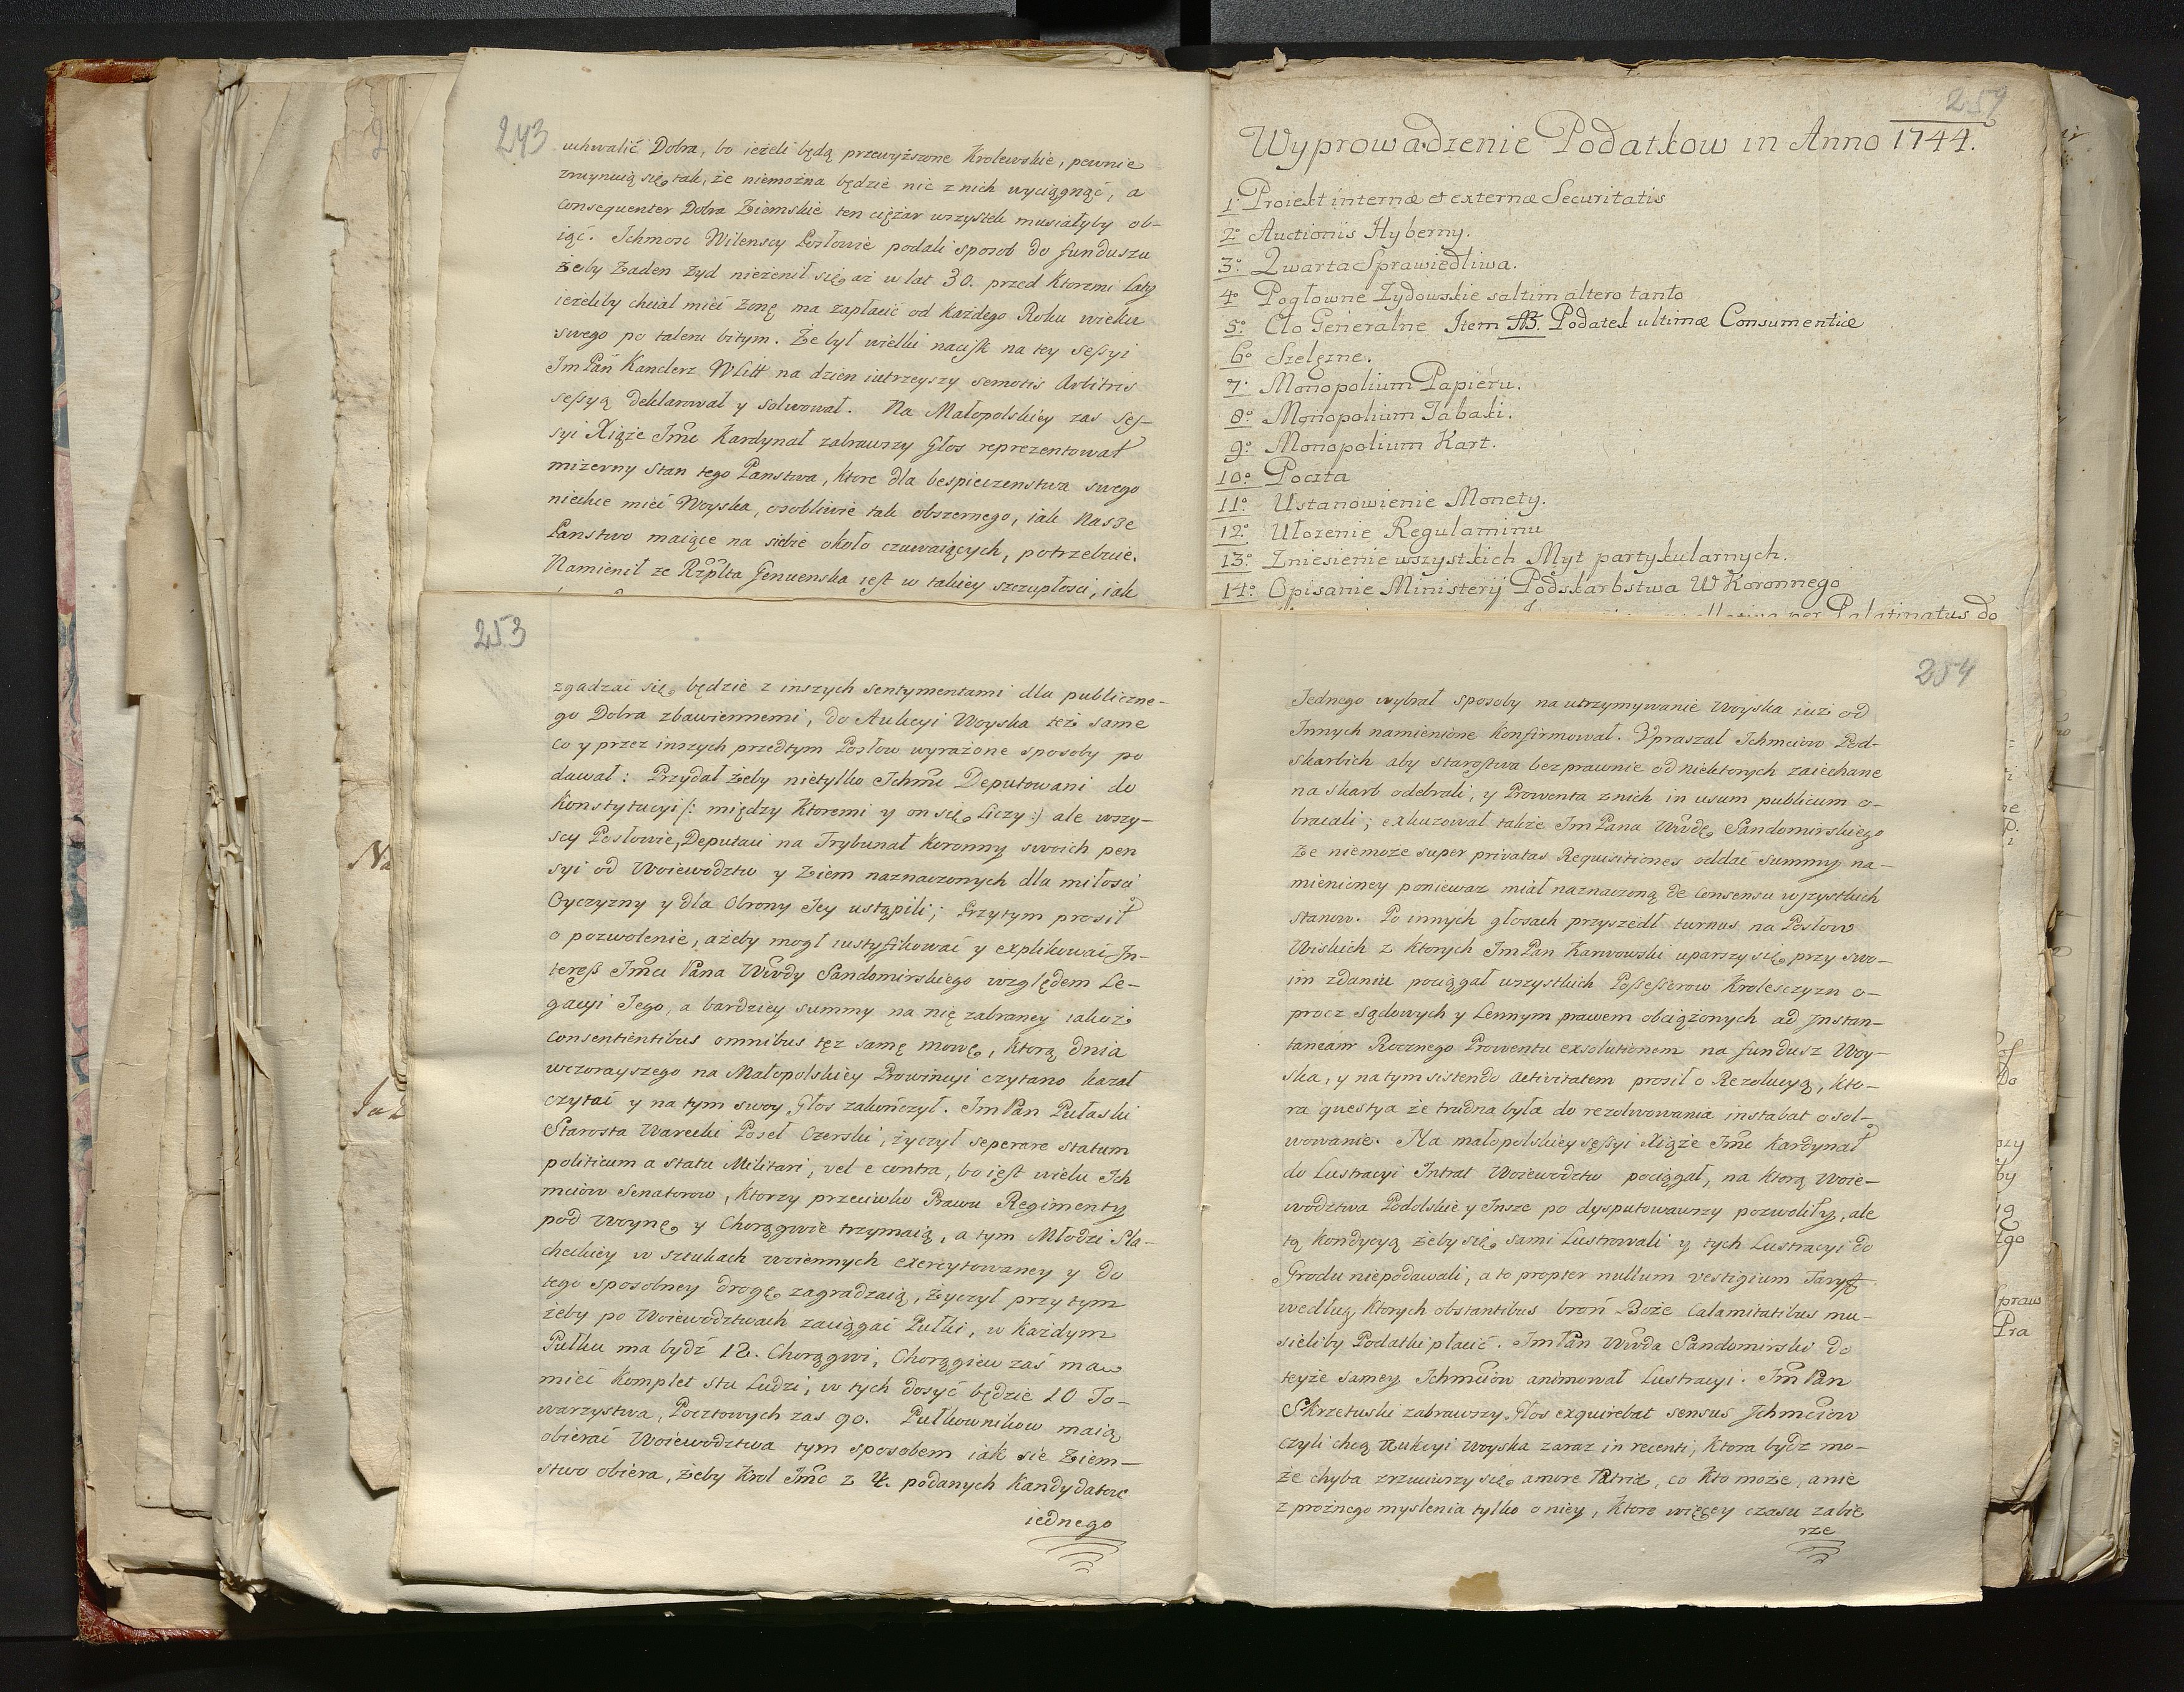 243
uchwalić Dobra, bo ieżeli będą przewyższone Krolewskie, pewnie
zruynuią się tak, że niemożna będzie nic z nich wyciągnąć, a
consequenter Dobra Ziemskie ten ciężar wszystek musiałyby ob-
iąć. Ichmosc Wilenscy Posłowie podali sposob do funduszu
żeby żaden Zyd nieżenił się aż w lat 30. przed ktoremi laty
ieżeliby chciał mieć żonę ma zapłacić od każdego Roku wieku
swego po taleru bitym. Że był wielki nacisk na tey sessyi
Im Pan Kanclerz WLitt na dzien iutrzeyszy semotis Arbitris
sessyą deklarował y solwował. Na Małopolskiey zas ses-
syi Xiąże Jmć Kardynał zabrawszy Głos reprezentował
mizerny stan tego Panstwa, ktore dla bespieczenstwa swego
niechce mieć Woyska, osobliwie tak obszernego, iak Nasze
Panstwo maiące na siebie około czuwaiących, potrzebuie.
Namienił ze Rzplta Genuenska iest w takiey szczupłosci, iak
259
Wyprowadzenie Podatkow in Anno 1744.
1º Proiekt internæ et externæ Securitatis
2º Auctionis Hyberny.
3º Qwarta Sprawiedliwa.
4º Pogłowne Zydowskie saltim altero tanto
5º Cło Generalne Item NB. Podatek ultimæ Consumentiæ
6º Szelęzne.
7º Monopolium Papieru.
8º Monopolium Tabaki.
9º Monopolium Kart.
10º Poczta
11º Ustanowienie Monety.
12º Ułozenie Regulaminu
13º Zniesienie wszystkich Myt partykularnych.
14º Opisanie Ministerij Podskarbstwa W Koronnego
per Palatinatus do
253
zgadzać się będzie z inszych sentymentami dla publiczne-
go Dobra zbawiennemi, do Aukcyi Woyska też same
co y przez inszych przedtym Posłow wyrażone sposoby po
dawał: Przydał żeby nietylko Ichmć Deputowani do
Konstytucyi /: między ktoremi y on się liczy :/ ale wszy-
scy Posłowie, Deputaci na Trybunał Koronny swoich pen
syi od Woiewodztw y Ziem naznaczonych dla miłosci
Oyczyzny y dla Obrony Jey ustąpili; Przytym prosił
o pozwolenie, ażeby mogł iustyfikować y explikować In-
teress Jmci Pana Wwdy Sandomirskiego względem Le-
gacyi Jego, a bardziey summy na nię zabraney iakoż
consentientibus omnibus tęż samę mowę, ktorą dnia
wczorayszego na Małopolskiey Prowincyi czytano kazał
czytać y na tym swoy Głos zakończył. Im Pan Pułaski
Starosta Warecki Poseł Czerski, życzył seperare statum
politicum a statu Militari, vel e contra, bo iest wielu Ich
mciow Senatorow, ktorzy przeciwko Prawu Regimenty
pod Woynę y Chorągwie trzymaią, a tym Młodzi Sla-
checkiey w sztukach woiennych exercytowaney y do
tego sposobney drogę zagradzaią, Życzył przy tym
żeby po Woiewodztwach zaciągać Pułki, w każdym
Pułku ma bydź 12. Chorągwi, Chorągiew zaś ma
mieć komplet stu Ludzi, w tych dosyć będzie 10 To-
warzystwa, Pocztowych zas 90. Pułkownikow maią
obierać Woiewodztwa tym sposobem iak się Ziem-
stwo obiera, żeby Krol Jmć z 4. podanych Kandydatow
iednego
254
Jednego wybrał sposoby na utrzymywanie Woyska iuż od
Innych namienione konfirmował. Upraszał Ichmciow Pod-
skarbich aby starostwa bezprawnie od niektorych zaiechane
na skarb odebrali, y Prowenta z nich in usum publicum o-
bracali; exkuzował także Im Pana Wwdę Sandomirskiego
że niemoże super privatas Requisitiones oddać summy na-
mienioney poniewaz miał naznaczoną de Consensu wszystkich
stanow. Po innych głosach przyszedł turnus na Posłow
Wiskich z ktorych Im Pan Karwowski uparszy się przy swo-
im zdaniu pociągał wszystkich Possessorow Krolesczyzn o-
procz sądowych y Lennym prawem obciążonych ad Instan-
taneam Rocznego Prowentu exsolutionem na fundusz Woy-
ska, y na tym sistendo activitatem prosił o Rezolucyą, kto-
ra questya że trudna była do rezolwowania instabat o sol-
wowanie. Na małopolskiey sessyi Xiąże Jmć Kardynał
do Lustracyi Intrat Woiewodztw pociągał, na ktorą Woie-
wodztwa Podolskie y Insze po dysputowawszy pozwoliły, ale
tą kondycyą żeby się sami Lustrowali y tych Lustracyi do
Grodu niepodawali, a to propter nullum vestigium Taryff
według ktorych obstantibus broń Boże Calamitatibus mu-
sieliby Podatki płacić. Im Pan Wwda Sandomirski do
teyże samey Ichmciow animował Lustracyi. Im Pan
Skrzetuski zabrawszy Głos exquirebat sensus Ichmciow
czyli chcą Aukcyi Woyska zaraz in recenti, ktora bydź mo-
że chyba zrzuciwszy się amore Patriæ, co kto może, a nie
z prożnego myslenia tylko o niey, ktore więcey czasu zabie
rze